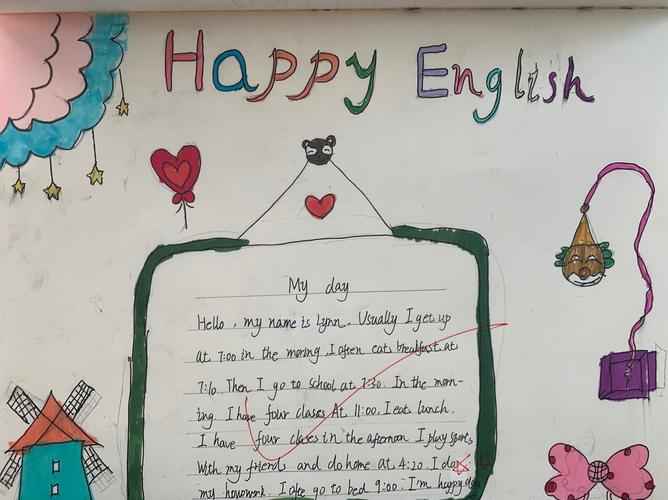 Happy English
My day
Hello, my name is Lynn. Usually I get up
at 7:00 in the moring. I often eat breakfast at
7:10 Then I go to school at 7:30. In the morn-
ing. I have four clases At 11:00. I eat lunch.
I have four clases in the afternoon I play sports
With my friends and do home at 4:20 I do
my homework. I go to bed 9:00. I'm happy